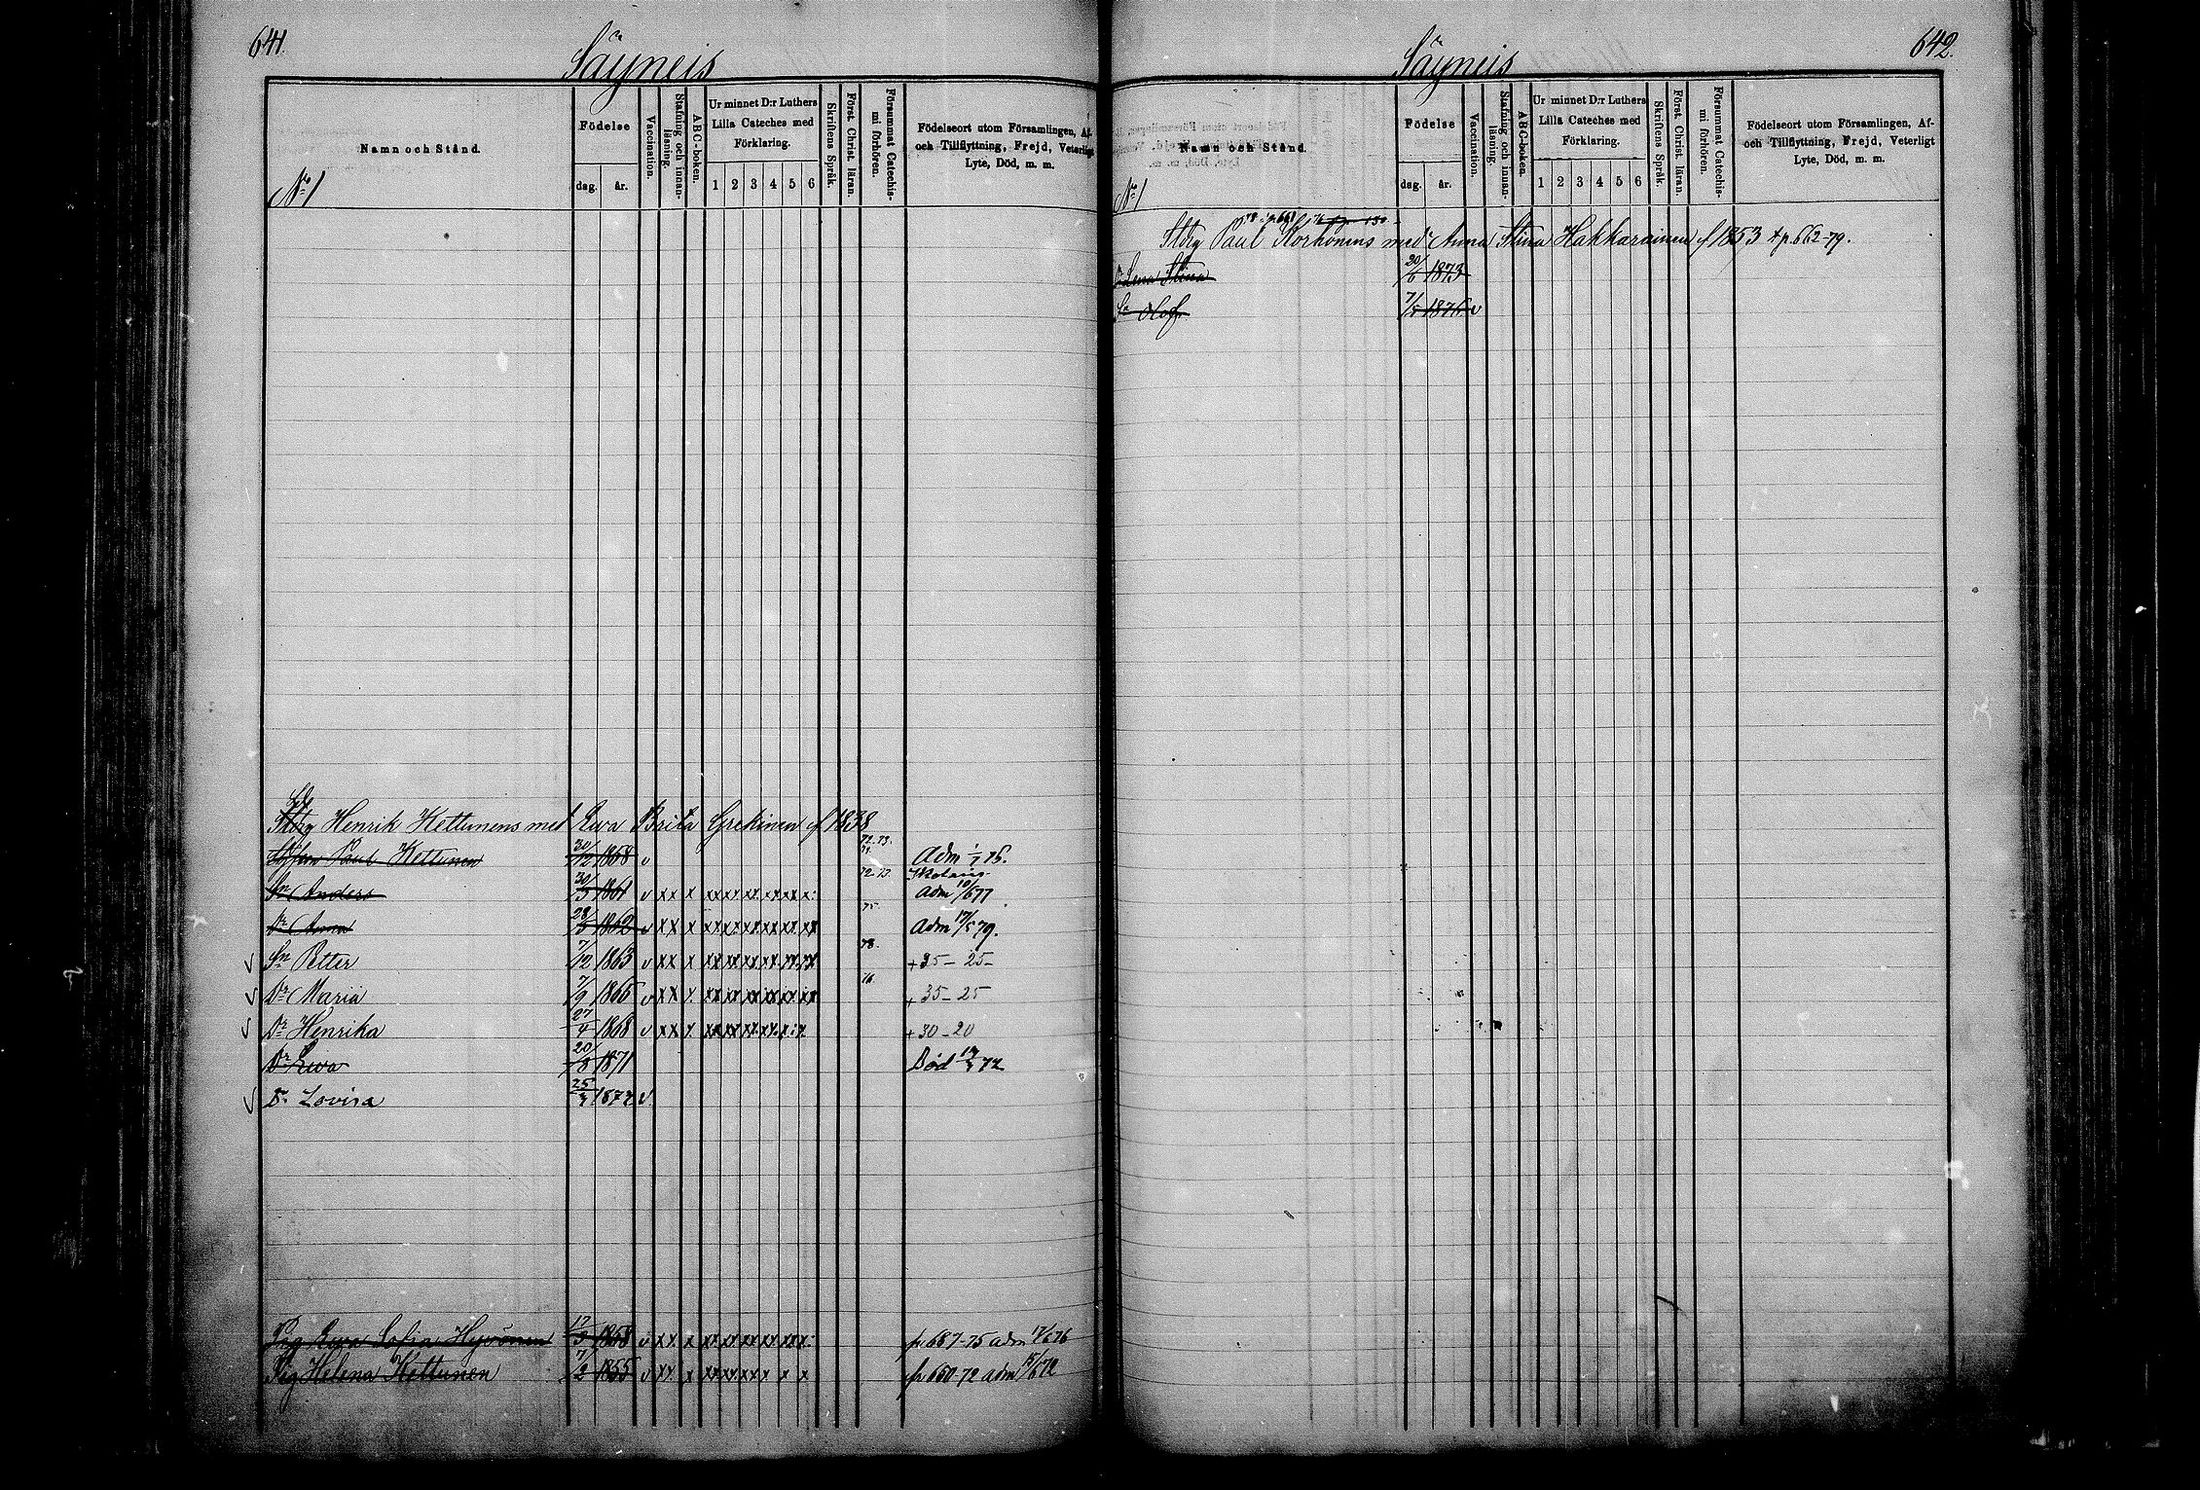 641.
Säyneis
Namn och Stånd.
Födelse
dag. år.
Vaccination.
Stafning och innan-läsning.
ABC-boken.
Ur minnet D:r Luthers
Lilla Cateches med
Förklaring.
1 2 3 4 5 6
Skriftens Språk.
Först. Christ. läran.
Försummat Catechis-mi förhören.
Födelseort utom Församlingen, Af-
och Tillflyttning, Frejd, Veterligt
Lyte, Död, m. m.
No 1
Henrik Kettunens med Ewa Brita Grekinen f 1838
Paul Kettunen 30/12 1858 v 72.73. Adm 75.
Sn Anders 30/3 1861 v xx x 72.73. Adm 10/6 77
Dr Anna 28/5 1862 v xx x 75. Adm 17/5 79.
Sn Petter 7/12 1863 v xx x 78. + 35 - 25 -
Dr Maria 7/9 1865 v xx x 76. + 35 - 25
Dr Henrika 27/4 1868 v xx x + 30 - 20
Dr Ewa 20/8 1871 Död 72
Dr Lovisa 25/ 187 v
Pig Ewa Sofia Hyvönen 17/3 1858 v xx x fr 687-75 adm 17/6 76
Pig Helena Kettunen 7/2 1855 v xx x fr 650-72 adm 15/6 72
642.
Säyneis
Namn och Stånd.
Födelse
dag. år.
Vaccination.
Stafning och innan-läsning.
ABC-boken.
Ur minnet D:r Luthers
Lilla Cateches med
Förklaring.
1 2 3 4 5 6
Skriftens Språk.
Först. Christ. läran.
Försummat Catechis-mi förhören.
Födelseort utom Församlingen, Af-
och Tillflyttning, Frejd, Veterligt
Lyte, Död, m. m.
No 1
Paul Korhonens med Anna Stina Hakkarainen f 1853 p. 662-79.
Dr Lena Stina 20/6 1873
Sn Olof 7/5 1876 v